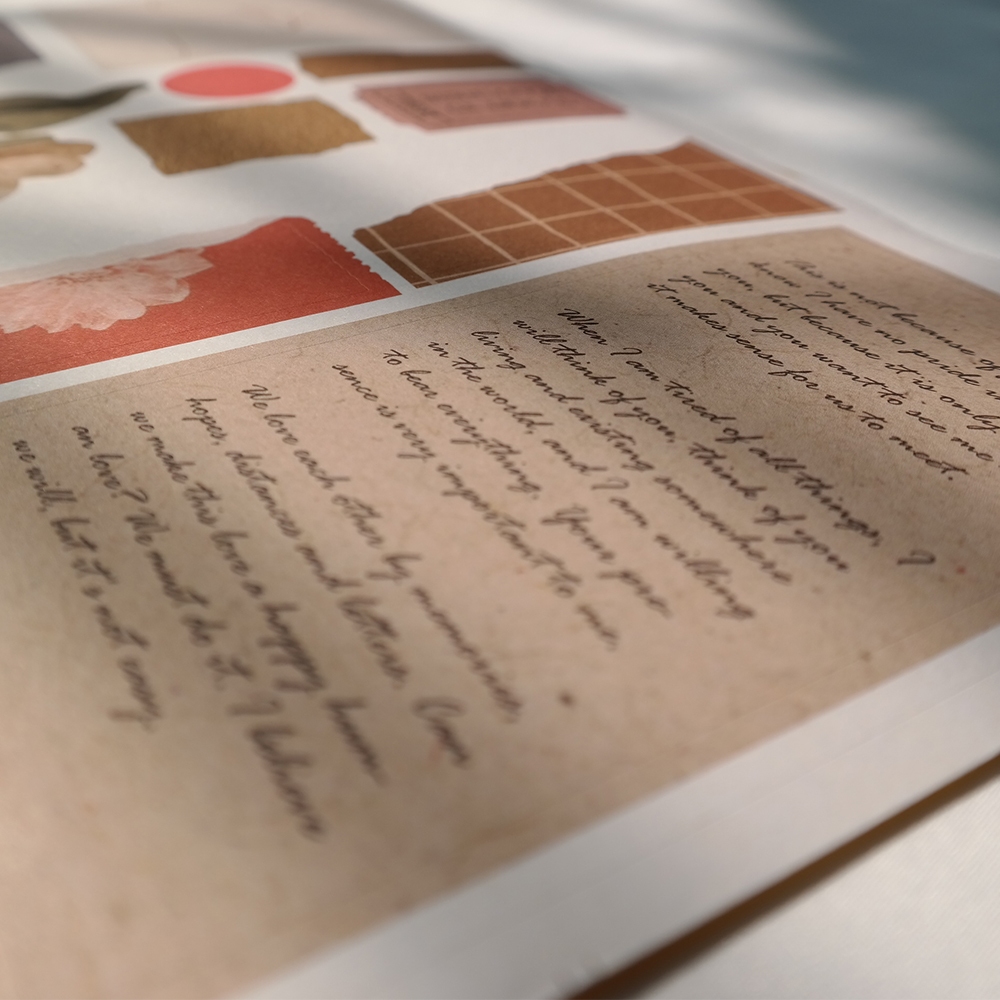 this is not because of
know I have no pride
you, but because it is only
you and you want to see me
it makes sense for us to meet.
When I am tired of all things, I
will think of you, think of you
living and existing somewhere
in the world, and I am willing
to bear everything. Your pre
sence is very important to me.
We love each other by memories,
hopes, distances and letters. Can
we make this love a happy hum
an love? We must do it. I believe
we will, but it is not easy.